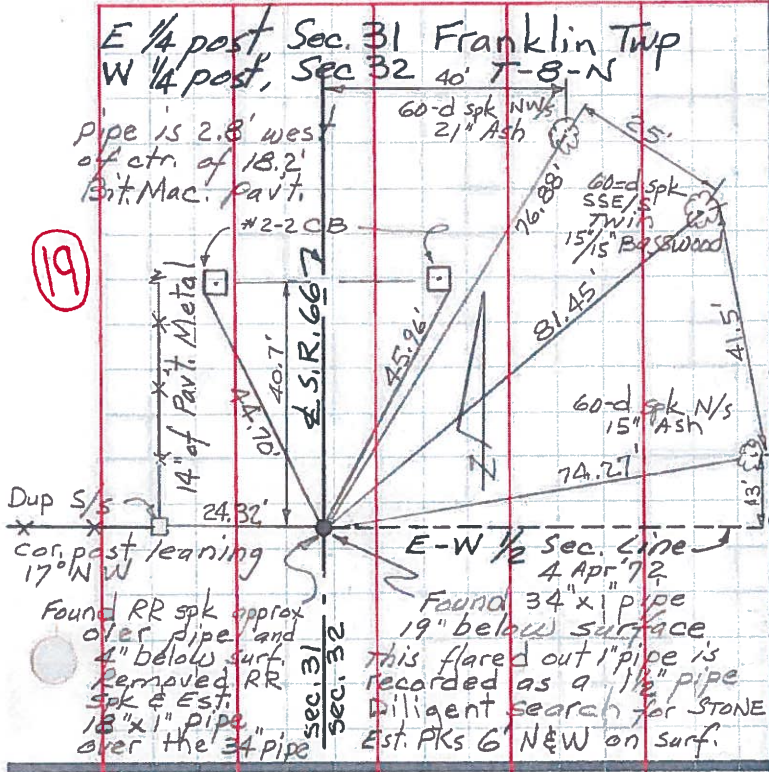 E 1/4 post, Sec. 31 Franklin Twp
W 1/4 post, Sec 32 T-8-N
40'
60-d spk NW/s
21" Ash
25'
pipe is 2.8' west
of ctr. of 18.2'
Bit. Mac. Pav't.
76.88'
60-d spk
SSE/s
Twin
15"/15" Basswood
#2-2 CB
19
14" of Pavt. Metal
44.70'
40.7'
℄ S.R. 667
45.96'
81.45'
41.5'
60-d spk N/s
15" Ash
N
74.27'
13'
Dup S/s
24.32'
cor. post leaning
17° NW
E-W 1/2 Sec. Line
4 Apr '72
Found RR spk approx
over pipe and
4" below surf.
Removed RR
spk & Est.
18"x1" pipe
over the 34" pipe
sec. 31
sec. 32
Found 34"x1" pipe
19" below surface
This flared out 1" pipe is
recorded as a 1 1/2" pipe
Diligent search for STONE
Est. PKs 6' N&W on surf.